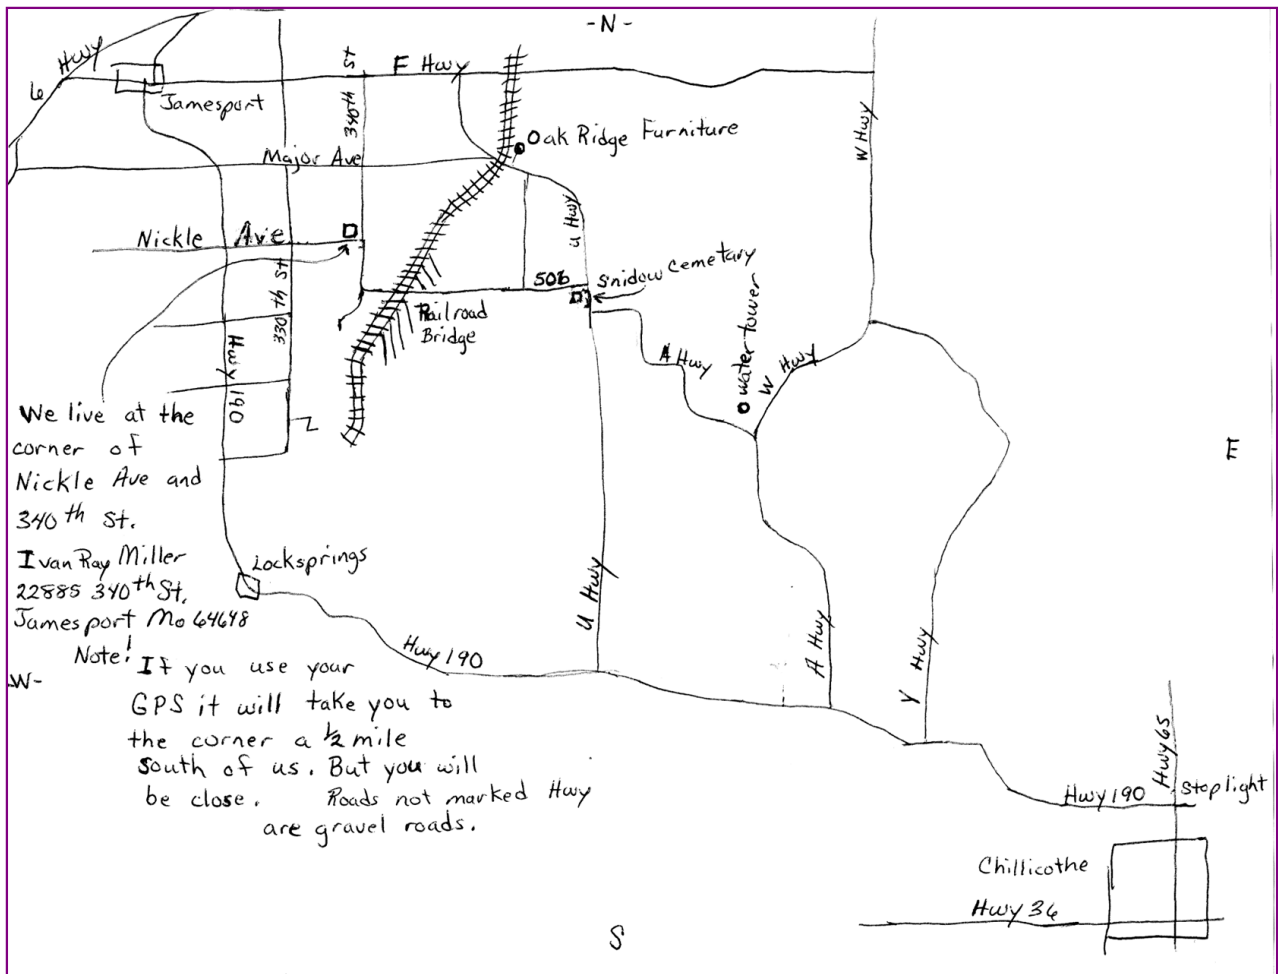 -N-
6 Hwy
F Hwy
340th St
Jamesport
Oak Ridge Furniture
W Hwy
Major Ave
Nickle Ave
U Hwy
506
Snidow Cemetary
330th St
Railroad
Bridge
water tower
A Hwy
W Hwy
Hwy 190
We live at the
corner of
Nickle Ave and
340th St.
E
Ivan Ray Miller
22885 340th St.
Jamesport Mo 64648
Locksprings
U Hwy
A Hwy
Y Hwy
Hwy 190
W-
Note! If you use your
GPS it will take you to
the corner a 1/2 mile
south of us. But you will
be close. Roads not marked Hwy
are gravel roads.
Hwy 65
Hwy 190
Stoplight
Chillicothe
Hwy 36
S